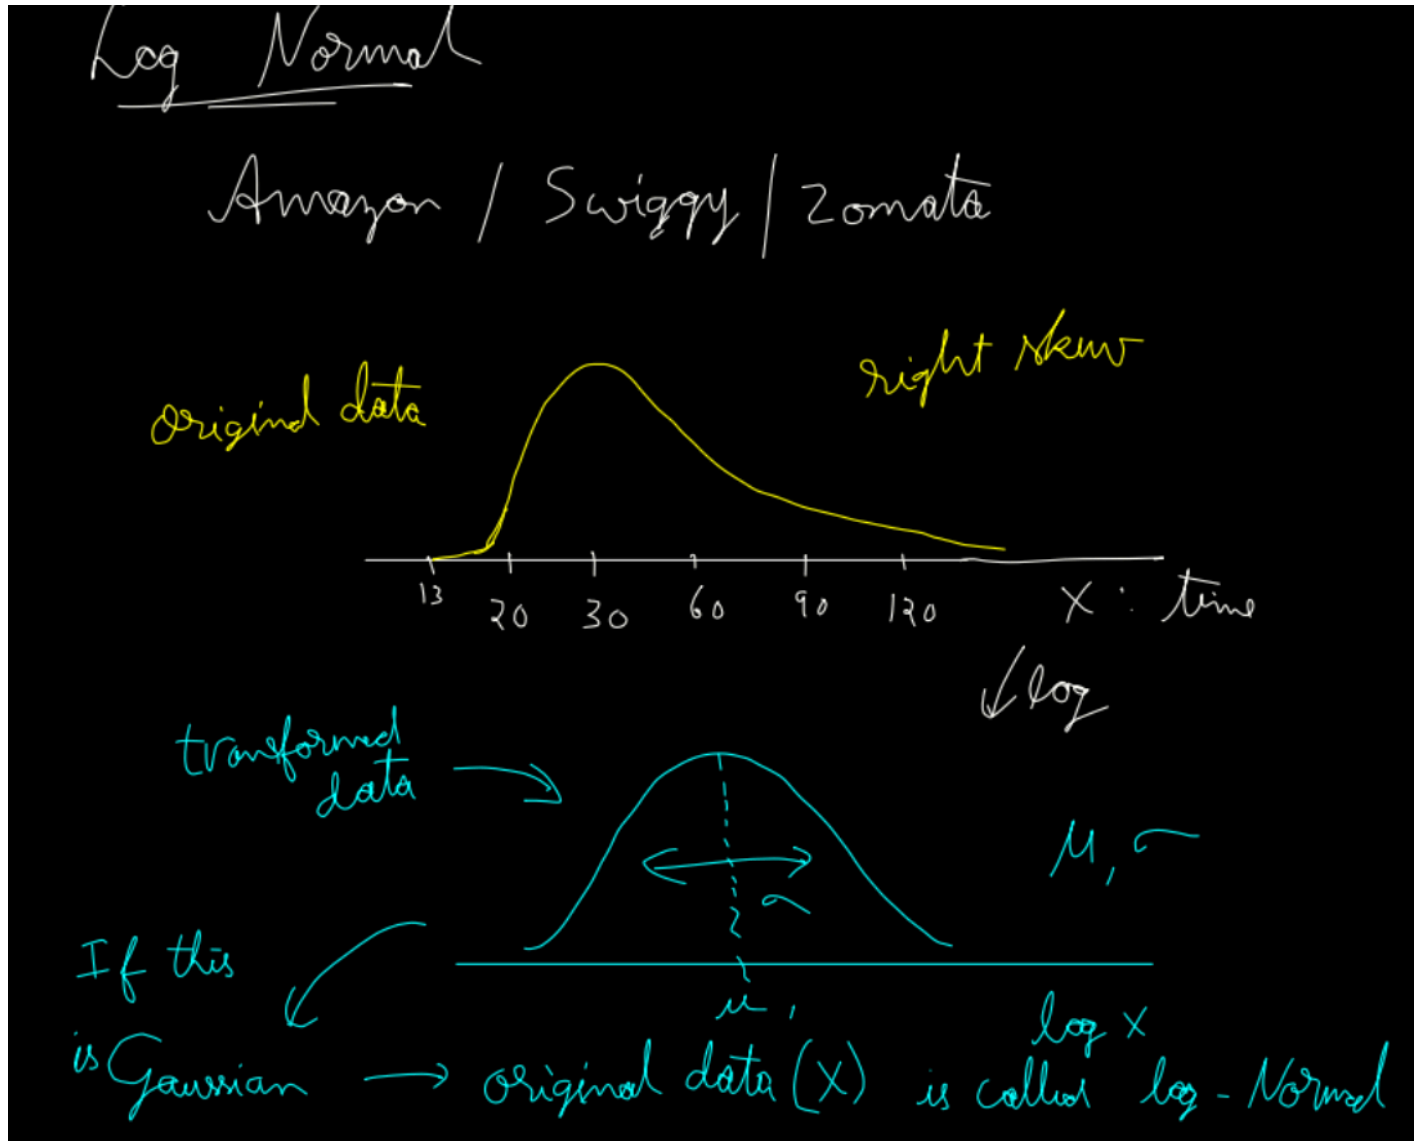 Log Normal
Amazon / Swiggy / Zomato
original data
right skew
13 20 30 60 90 120 X : time
↓ log
transformed
data
μ, σ
σ
If this
μ,
log X
is Gaussian → original data (X) is called log - Normal